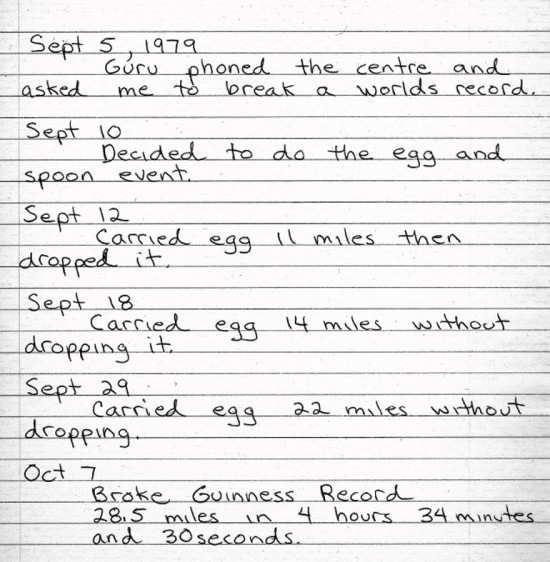 Sept 5, 1979
Guru phoned the centre and
asked me to break a worlds record.
Sept 10
Decided to do the egg and
spoon event.
Sept 12
Carried egg 11 miles then
dropped it.
Sept 18
Carried egg 14 miles without
dropping it.
Sept 29
Carried egg 22 miles without
dropping.
Oct 7
Broke Guinness Record
28.5 miles in 4 hours 34 minutes
and 30 seconds.